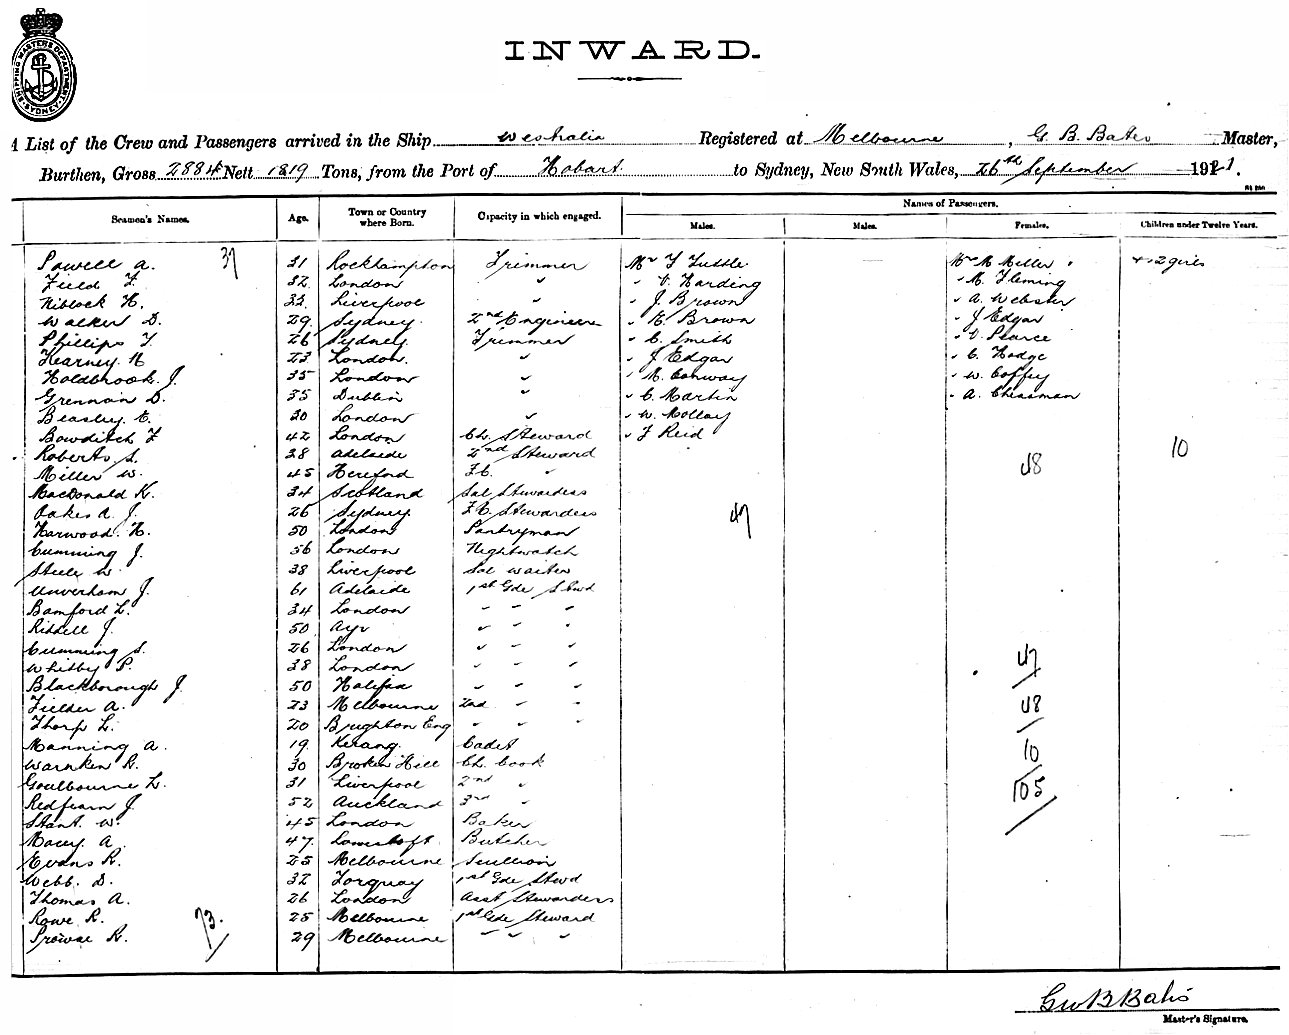 SHIPPING MASTERS DEPARTMENT SYDNEY
INWARD.
List of the Crew and Passengers arrived in the Ship Westralia Registered at Melbourne, G. B. Bates Master,
Burthen, Gross 2884 Nett 1819 Tons, from the Port of Hobart. to Sydney, New South Wales, 26th September 1921.
Names of Passengers.
Seamen's Names. Age. Town or Country where Born. Capacity in which engaged. Males. Males. Females. Children under Twelve Years.
Powell A. 37 31 Rockhampton Trimmer Mr T Tuttle Mrs M Miller + 2 girls
Field F. 32 London " " V. Harding " M. Fleming
Niblock H. 33 Liverpool " " J. Brown " A. Webster
Walker D. 29 Sydney. 2nd Engineer " E. Brown " J Edgar
Phillips T. 26 Sydney Trimmer " C. Smith " V. Pearce
Kearney H 23 London. " " J Edgar " C. Hodge
Holdbrook. J. 35 London " " M. Conway " W. Coffey
Grennan D. 35 Dublin " " C. Martin " A. Chessman
Beasley E. 30 London " " W. Molloy
Bowditch F 42 London Ch. Steward " F Reid
Roberts S. 38 Adelaide 2nd Steward 10
Miller W. 45 Hereford F.C. " 48
MacDonald K. 34 Scotland Sal Stewardess
Oakes A. J. 26 Sydney F.C Stewardess 47
Harwood. H. 50 London Pantryman
Cumming J. 56 London Nightwatch
Steele W. 38 Liverpool Sal Waiter
Unverhau J. 61 Adelaide 1st Gde Stwd
Bamford L. 34 London " " "
Riddell J. 50 Ayr " " "
Cumming S. 26 London " " " 47
Whitby P. 38 London " " "
Blackborough J 50 Halifax " " "
Fielder A. 23 Melbourne 2nd " " 48
Thorp L. 20 Brighton Eng " " "
Manning A. 19. Kerang. Cadet 10
Warnken R. 30 Broken Hill Ch. Cook
Goulbourne L. 31 Liverpool 2nd " 105
Redfearn J. 52 Auckland 3rd "
Stant. W. 45 London Baker
Macey A. 47. Lowestoft. Butcher
Evans R. 25 Melbourne Scullion
Webb. D. 32 Torquay 1st Gde Stwd
Thomas A. 26 London Asst Stewardess
Rowe R. 73. 25 Melbourne 1st Gde Steward
Prowse R. 29 Melbourne " " "
Geo B Bates
Master's Signature.